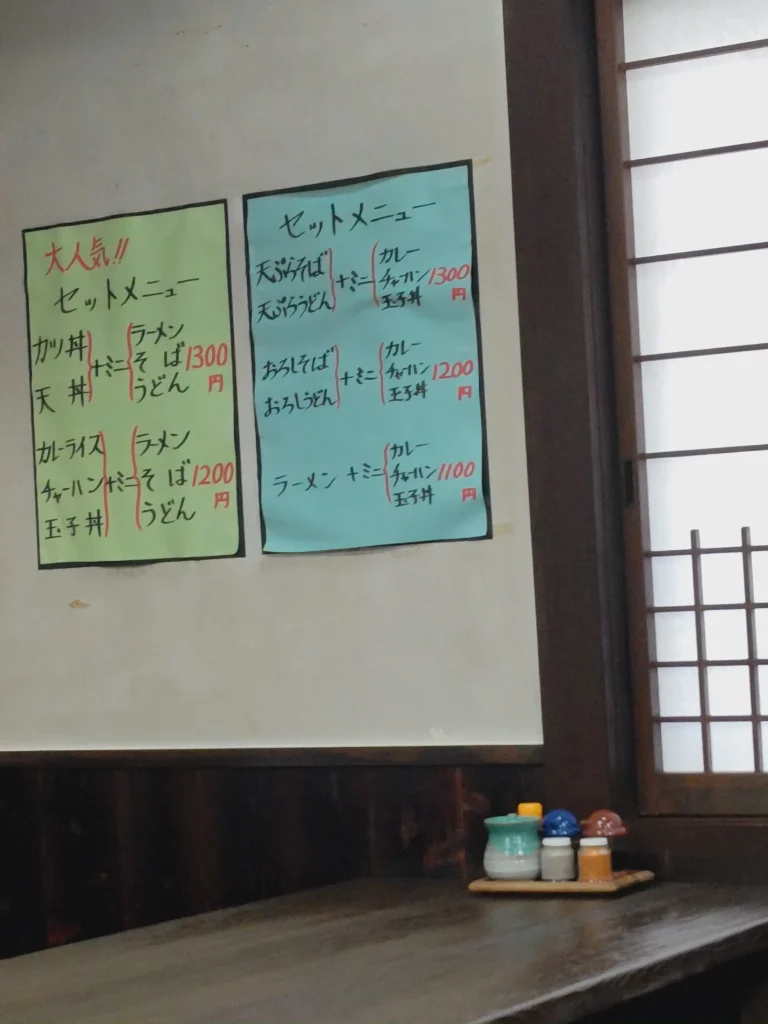 大人気!!
セットメニュー
カツ丼
天丼
+ミニ
ラーメン
そば
うどん
1300円
カレーライス
チャーハン
玉子丼
+ミニ
ラーメン
そば
うどん
1200円
セットメニュー
天ぷらそば
天ぷらうどん
+ミニ
カレー
チャーハン
玉子丼
1300円
おろしそば
おろしうどん
+ミニ
カレー
チャーハン
玉子丼
1200円
ラーメン
+ミニ
カレー
チャーハン
玉子丼
1100円